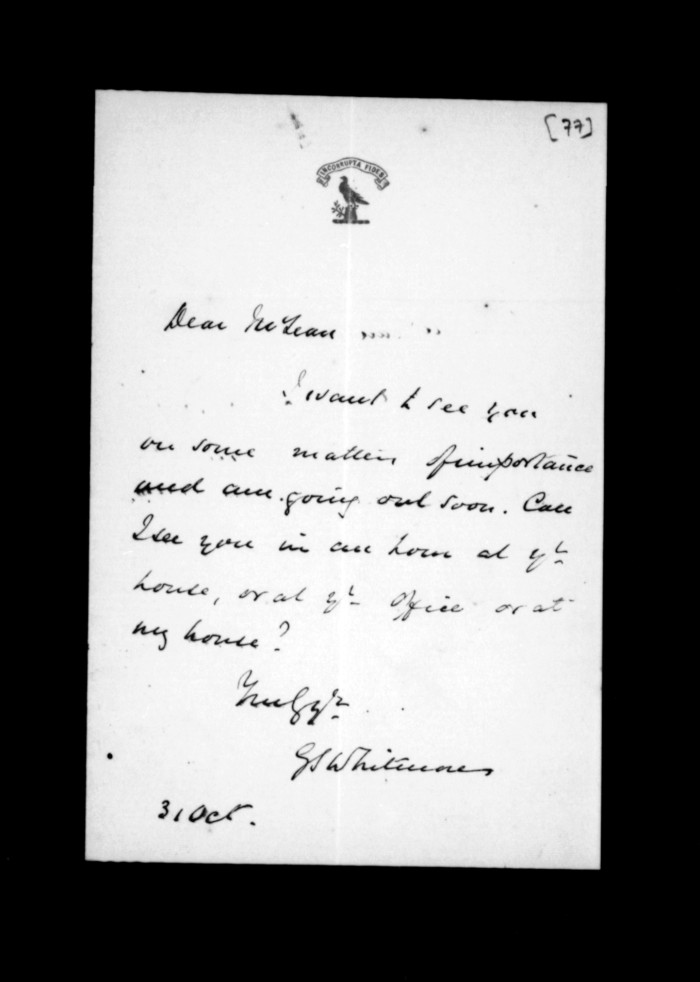 [77]
INCORRUPTA FIDES
Dear McLean
I want to see you
on some matters of importance
and am going out soon. Can
I see you in an hour at yr
house, or at yr office or at
my house?
Truly yr
GSWhitmore
31 Oct.